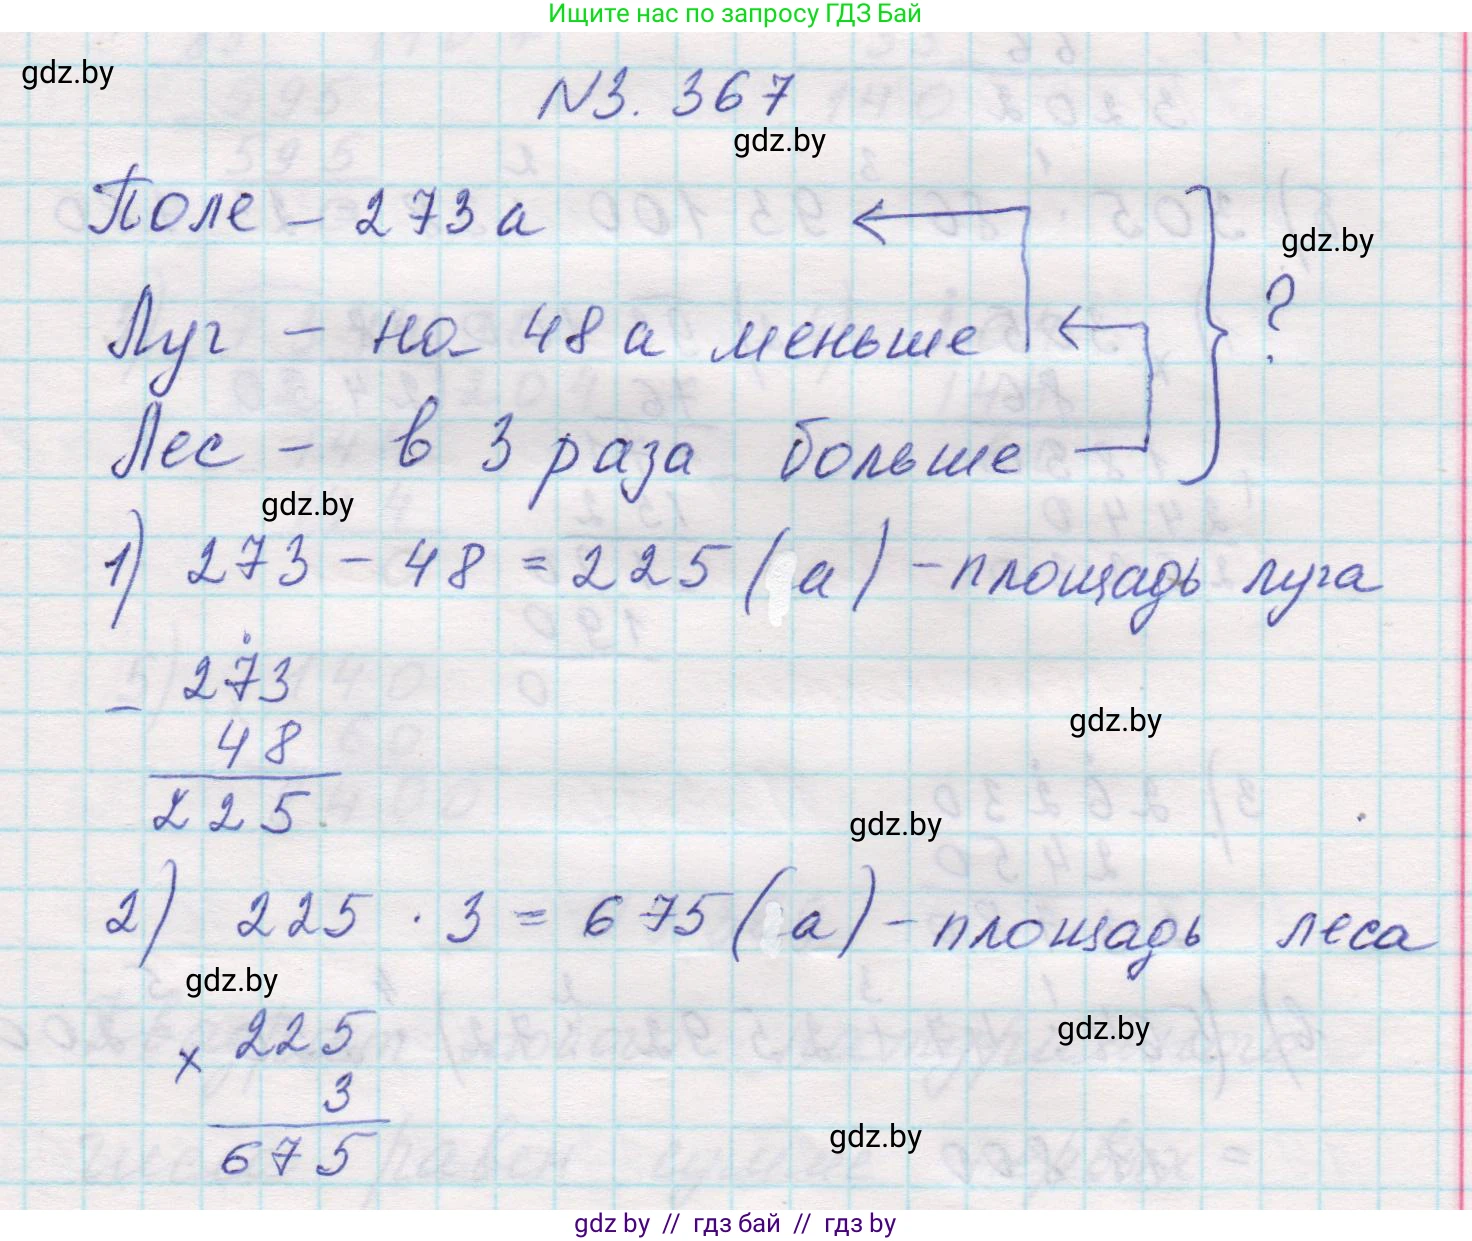 Ищите нас по запросу ГДЗ Бай
gdz.by
N3. 367
gdz.by
Поле – 273 а
gdz.by
Луг – на 48 а меньше
?
Лес – в 3 раза больше
gdz.by
1) 273 – 48 = 225 (а) – площадь луга
– 273
48
225
gdz.by
gdz.by
2) 225 · 3 = 675 (а) – площадь леса
gdz.by
× 225
3
675
gdz.by
gdz.by
gdz by // гдз бай // гдз by